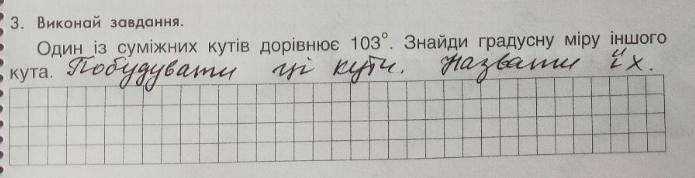 3. Виконай завдання.
Один із суміжних кутів дорівнює 103°. Знайди градусну міру іншого
кута. Побудувати ці кути. Назвати їх.